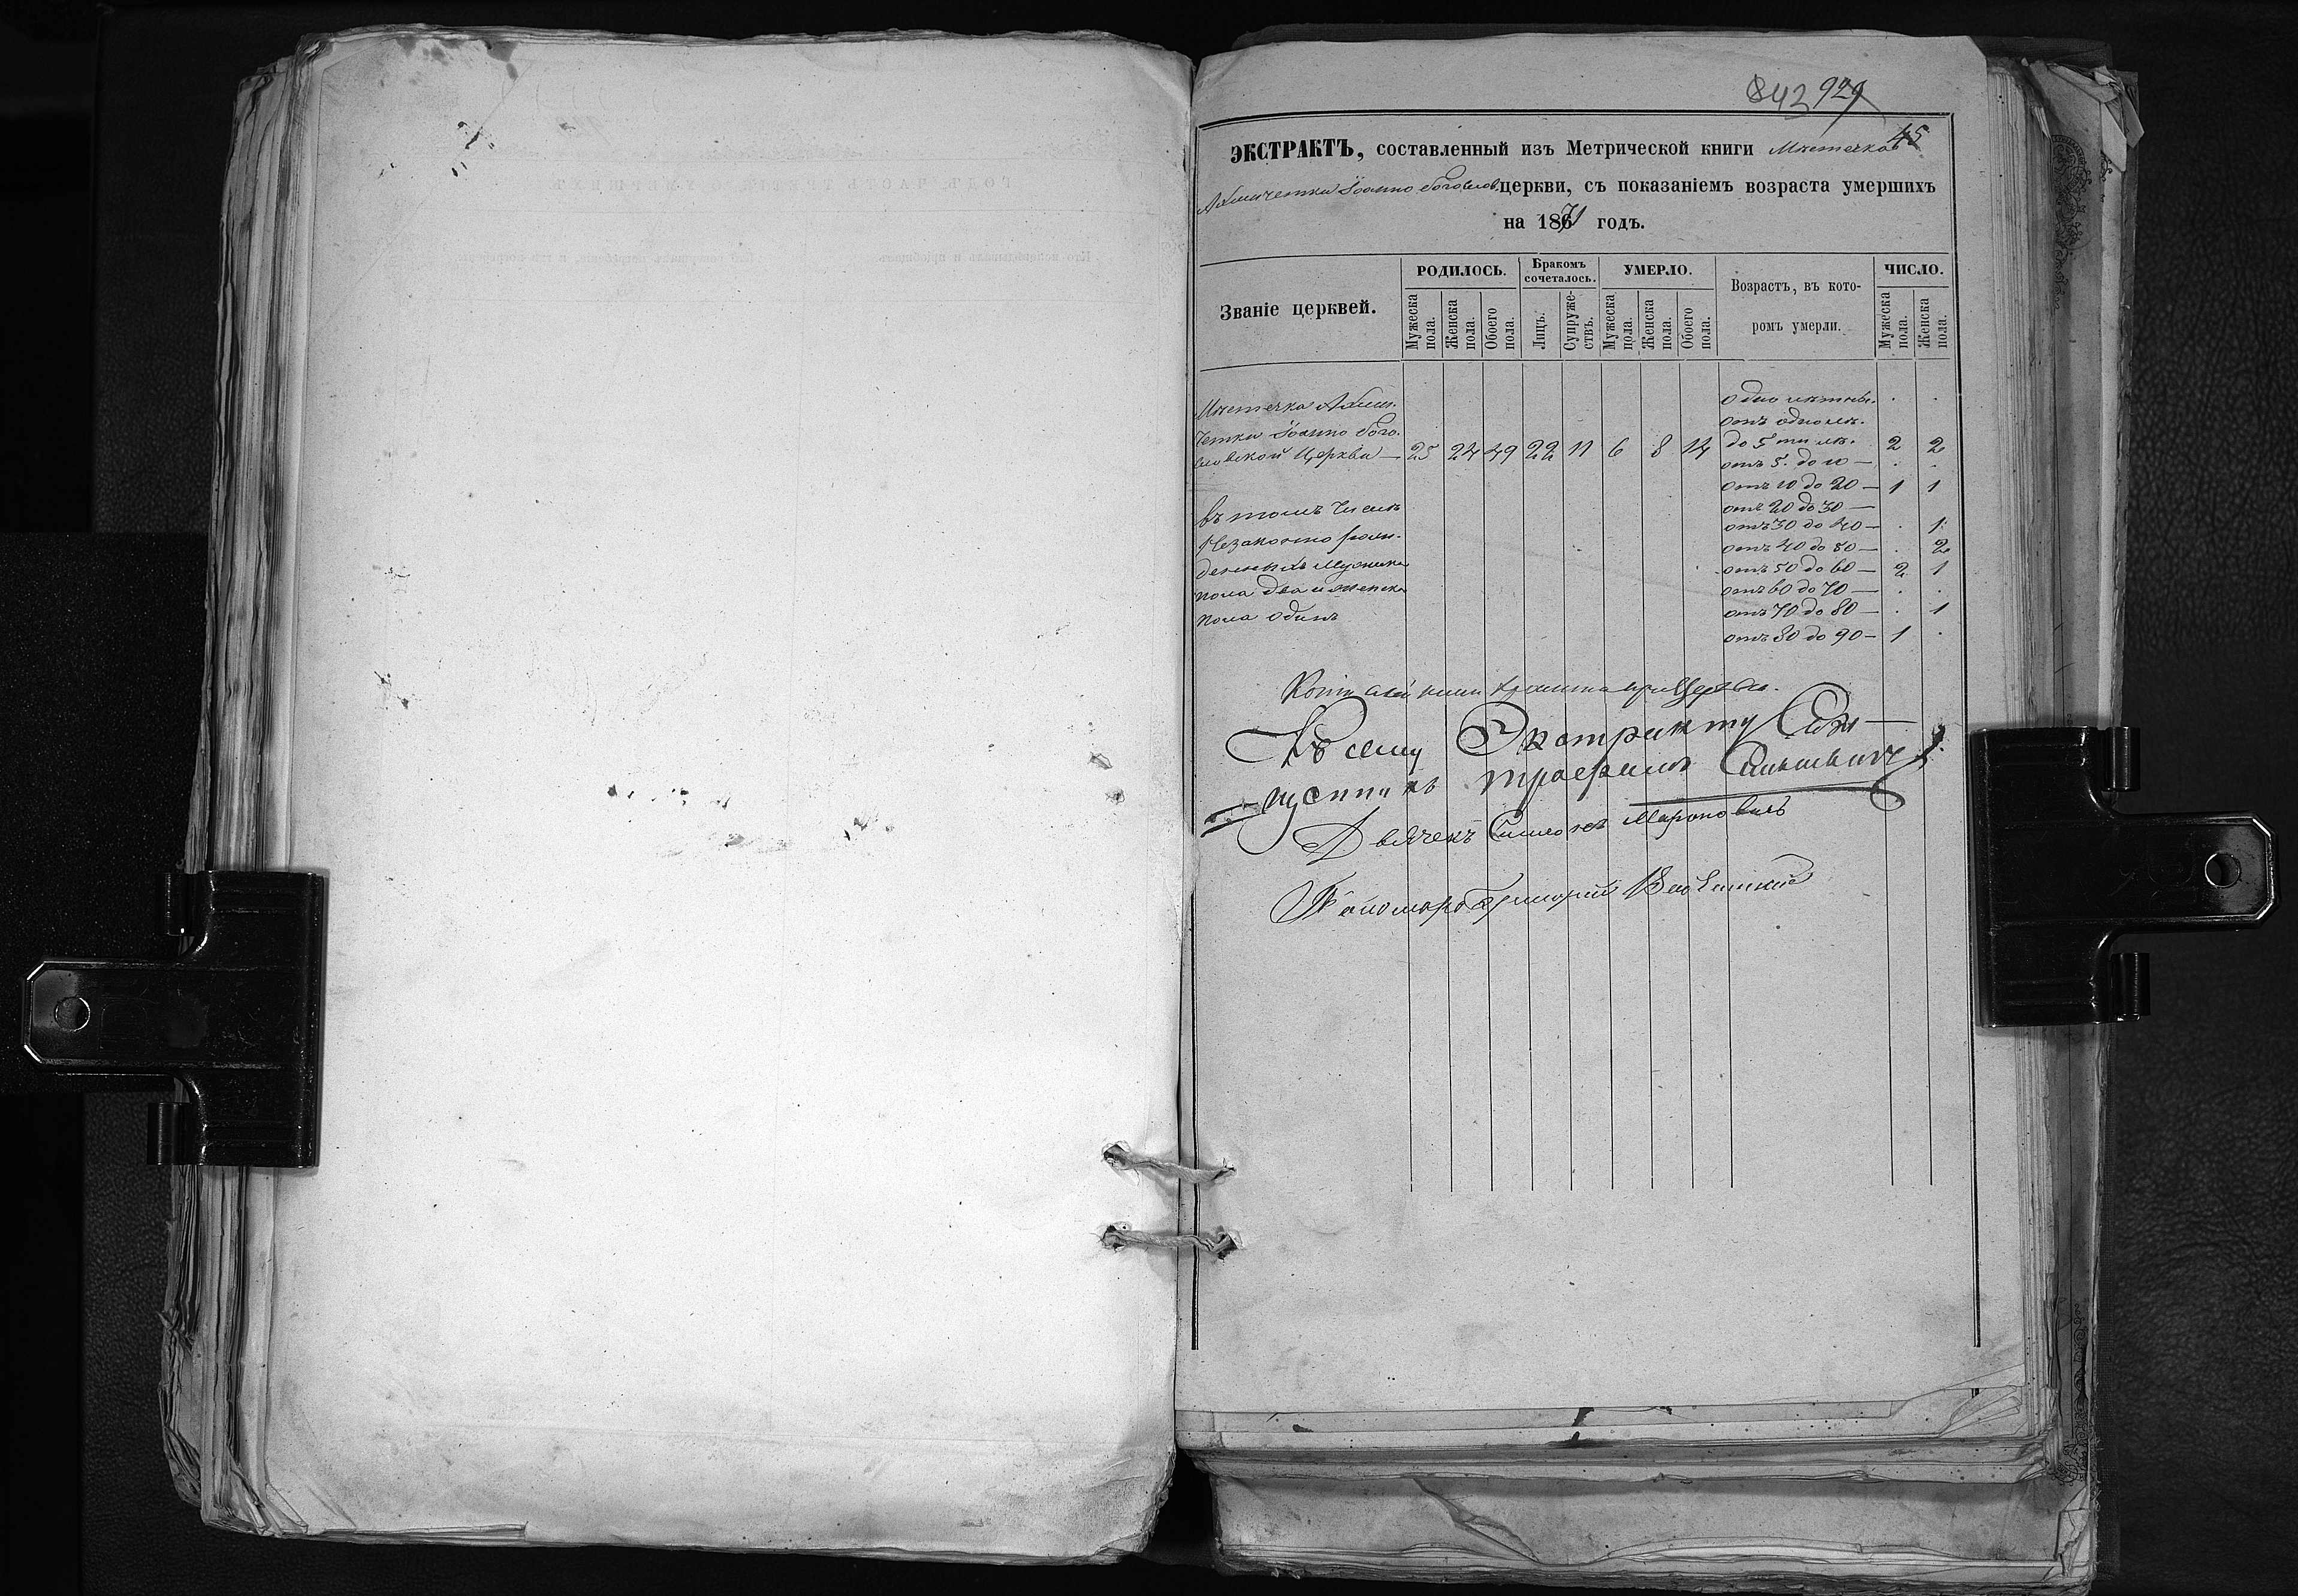 842 929
45
ЭКСТРАКТЪ, составленный изъ Метрической книги Мѣстечка
Ахмечетки Іоанно Богослов. церкви, съ показаніемъ возраста умершихъ
на 1871 годъ.
Званіе церквей. РОДИЛОСЬ. Бракомъ сочеталось. УМЕРЛО. Возрастъ, въ кото- ЧИСЛО.
ромъ умерли.
Мужеска пола. Женска пола. Обоего пола. Лицъ. Супруже-ствъ. Мужеска пола. Женска пола. Обоего пола. Мужеска пола. Женска пола.
Мѣстечка Ахме- одно лѣтны. . .
четки Іоанно Бого- отъ однолѣ.
словской Церкви — 25 24 49 22 11 6 8 14 до 5 ти лѣ. 2 2
отъ 5. до 10 — . .
отъ 10 до 20 — 1 1
въ томъ числѣ отъ 20 до 30 —
Незаконно рож- отъ 30 до 40 — . 1
денныхъ мужеска отъ 40 до 50 — . 2
пола два и женска отъ 50 до 60 — 2 1
пола одинъ отъ 60 до 70 — . .
отъ 70 до 80 — . 1
отъ 80 до 90 — 1 .
Копія сей при Церкви.
Къ сему Экстракту Свя-
Дьячекъ Симеонъ Мароновичъ
Пономарь Григорій